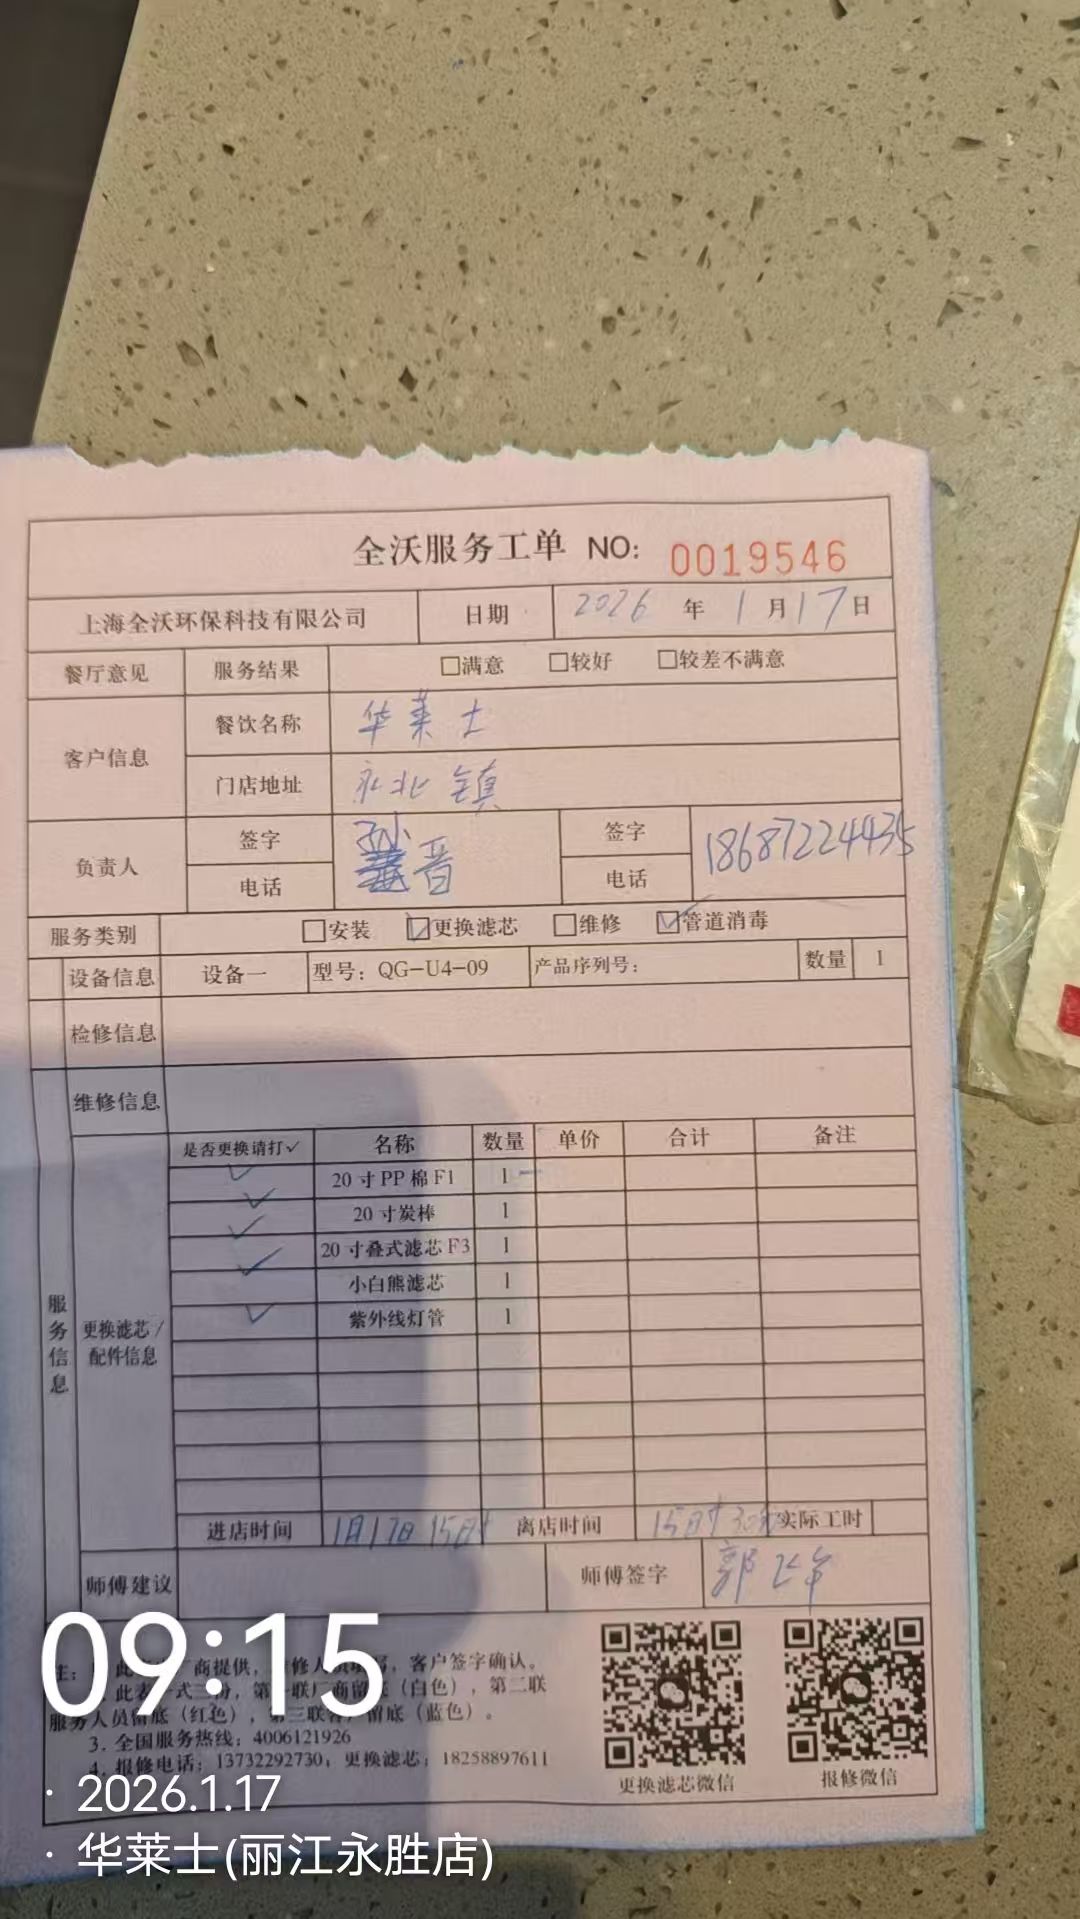 全沃服务工单 NO: 0019546
上海全沃环保科技有限公司 日期 2026 年 1 月 17 日
餐厅意见 服务结果 □满意 □较好 □较差不满意
客户信息 餐饮名称 华莱士
门店地址 永北镇
负责人 签字 晋 签字 18687224435
电话 电话
服务类别 □安装 ☑更换滤芯 □维修 ☑管道消毒
设备信息 设备一 型号: QG-U4-09 产品序列号: 数量 1
检修信息
维修信息
服务信息 更换滤芯/配件信息
是否更换请打✓ 名称 数量 单价 合计 备注
✓ 20寸PP棉F1 1
✓ 20寸炭棒 1
✓ 20寸叠式滤芯F3 1
✓ 小白熊滤芯 1
✓ 紫外线灯管 1
进店时间 1月17日 15时 离店时间 15时30分 实际工时
师傅建议 师傅签字 郭
注: 此 厂商提供, 维修人员填写, 客户签字确认。
此表一式三份, 第一联厂商留底(白色), 第二联
服务人员留底(红色), 第三联客户留底(蓝色)。
3. 全国服务热线: 4006121926
4. 报修电话: 13732292730, 更换滤芯: 18258897611
更换滤芯微信 报修微信
09:15
· 2026.1.17
· 华莱士(丽江永胜店)